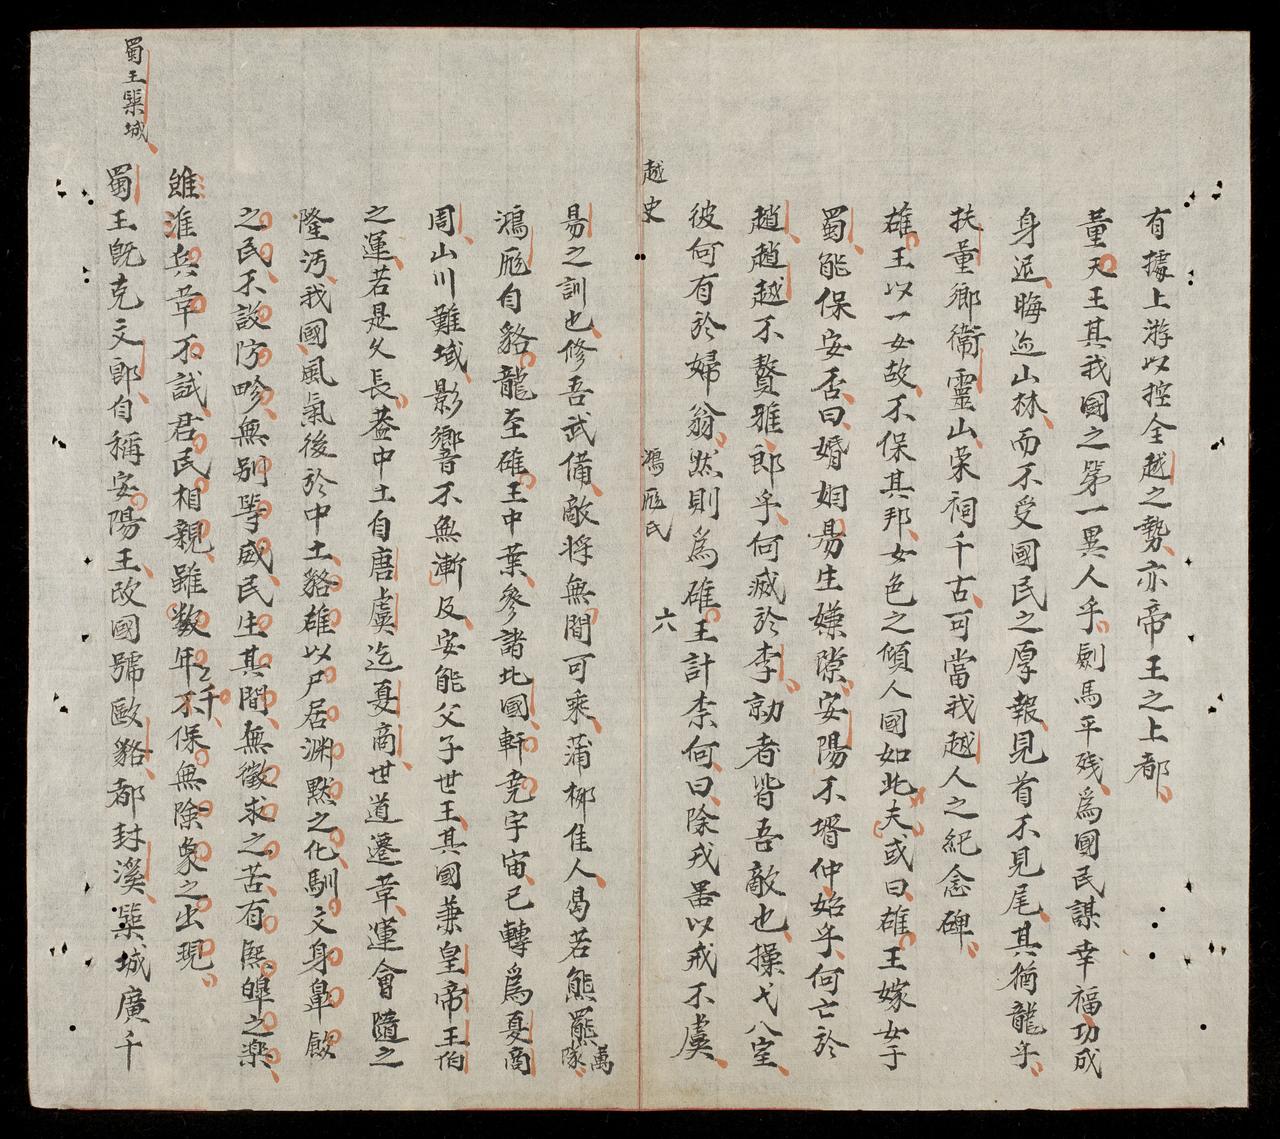 有據上游以控全越之勢亦帝王之上都
董天王其我國之第一異人乎劍馬平殘為國民謀幸福功成
身退晦迹山林而不受國民之厚報見首不見尾其猶龍乎
扶董鄉衛靈山榮祠千古可當我越人之紀念碑
雄王以一女故不保其邦女色之傾人國如此夫或曰雄王嫁女于
蜀能保安否曰婚姻易生嫌隙安陽不壻仲始乎何亡於
趙趙越不贅雅郎乎何滅於李勍者皆吾敵也操戈入室
彼何有於婦翁然則為碓王計柰何曰除我器以戒不虞
越史 鴻厖氏 六
易之訓也修吾武備敵將無間可乘蒲柳佳人曷若熊羆萬隊
鴻厖自貉龍至碓王中葉參諸北國軒堯宇宙已轉為夏商
周山川難域影響不無漸及安能父子世王其國兼皇帝王伯
之運若是久長蓋中土自唐虞迄夏商世道遷革運會隨之
隆汚我國風氣後於中土貉雄以尸居淵默之化馴文身鼻飲
之民不設防畛無別等威民生其間無徵求之苦有熙皥之樂
雖淮兵革不試君民相親雖數年二千不保無除象之出現
蜀王築城
蜀王旣克文郎自稱安陽王改國號歐貉都封溪築城廣千